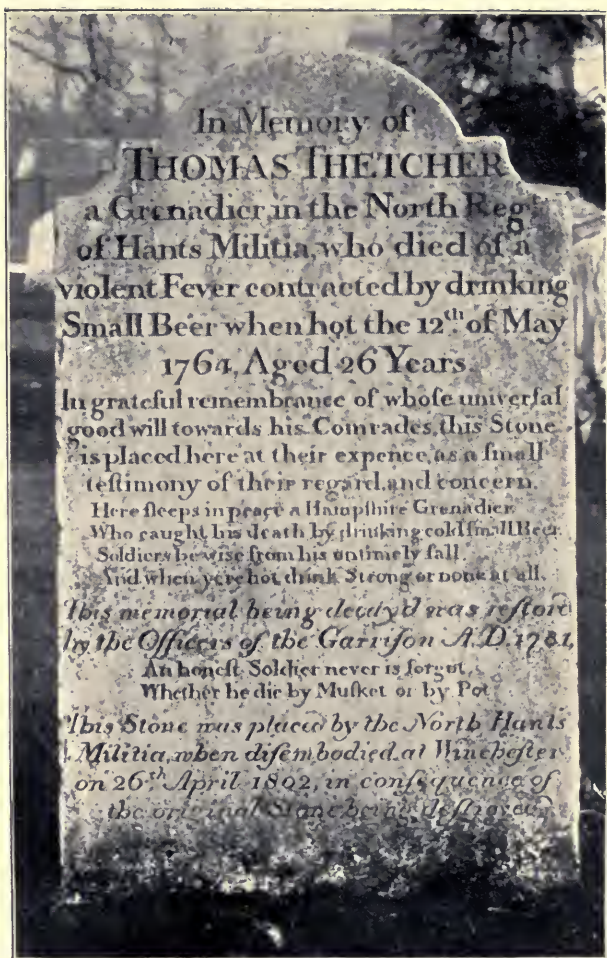 In Memory of
THOMAS THETCHER
a Grenadier in the North Reg.t
of Hants Militia, who died of a
violent Fever contracted by drinking
Small Beer when hot the 12th. of May
1764, Aged 26 Years.
In grateful remembrance of whoſe univerſal
good will towards his Comrades, this Stone
is placed here at their expence, as a ſmall
teſtimony of their regard and concern.
Here ſleeps in peace a Hampſhire Grenadier,
Who caught his death by drinking cold ſmall Beer,
Soldiers be wise from his untimely fall
And when ye're hot drink Strong or none at all.
This memorial being decay'd was reſtor'd
by the Officers of the Garriſon A.D. 1781,
An honeſt Soldier never is forgot,
Whether he die by Muſket or by Pot.
This Stone was placed by the North Hants
Militia, when diſembodied at Wincheſter
on 26th. April 1802, in conſequence of
the original Stone being deſtroyed.